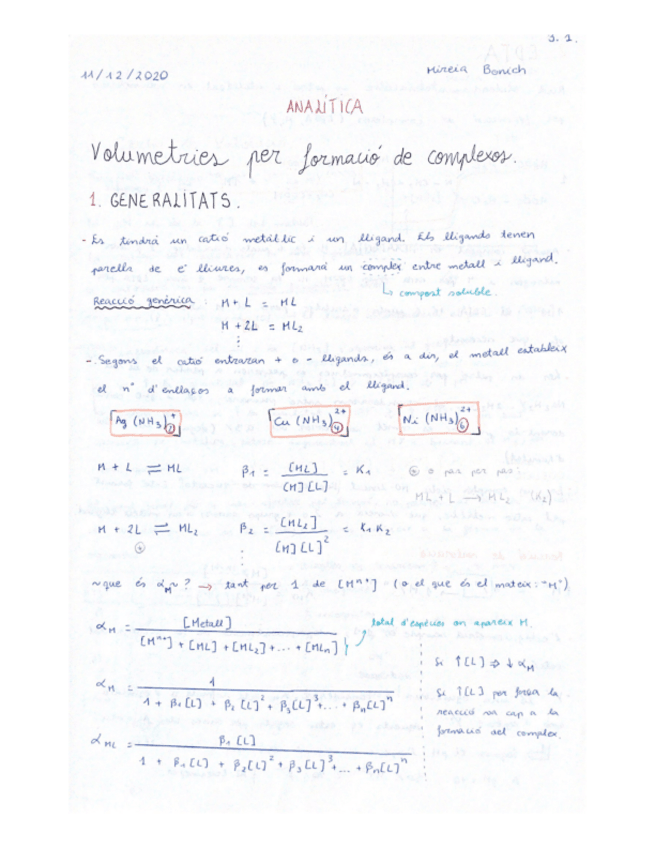 3. 1.
11/12/2020
Mireia Bonich
ANALÍTICA
Volumetries per formació de complexos.
1. GENERALITATS.
- Es tindrà un catió metàl·lic i un lligand. Els lligands tenen
parells de e⁻ lliures, es formarà un complex entre metall i lligand.
↳ compost soluble.
Reacció genèrica : M + L = ML
M + 2L = ML₂
⋮
- Segons el catió entraran + o - lligands, és a dir, el metall estableix
el nº d'enllaços a formar amb el lligand.
[Ag (NH₃)₂]⁺ [Cu (NH₃)₄]²⁺ [Ni (NH₃)₆]²⁺
M + L ⇌ ML β₁ = [ML] / [M][L] = K₁ o pas per pas:
ML + L → ML₂ (K₂)
M + 2L ⇌ ML₂ β₂ = [ML₂] / [M][L]² = K₁K₂
⋮
~que és αM~? → tant per 1 de [Mⁿ⁺] (o el que és el mateix: "M")
αM = [Metall] / [Mⁿ⁺] + [ML] + [ML₂] + ... + [MLn]
total d'espècies on apareix M.
αM = 1 / 1 + β₁[L] + β₂[L]² + β₃[L]³ + ... + βn[L]ⁿ
αML = β₁[L] / 1 + β₁[L] + β₂[L]² + β₃[L]³ + ... + βn[L]ⁿ
Si ↑[L] ⇒ ↓αM
Si ↑[L] per força la
reacció va cap a la
formació del complex.